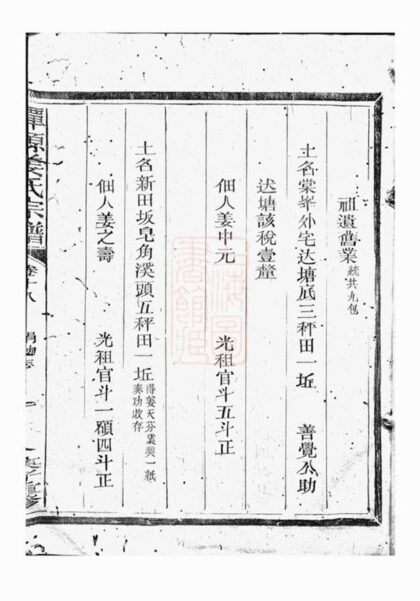 祖遺舊業統共九包
土名棠峯外宅达塘底三秤田一坵　善覺公助
达塘該稅壹釐
佃人姜中元　光租官斗五斗正
土名新田坂皂角溪頭五秤田一坵得姜天芬票契一紙奏功收存
佃人姜之壽　光租官斗一碩四斗正
姜氏宗譜
卷十八
捐助志